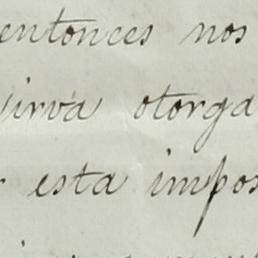 entonces nos
sirva otorga
esta impos